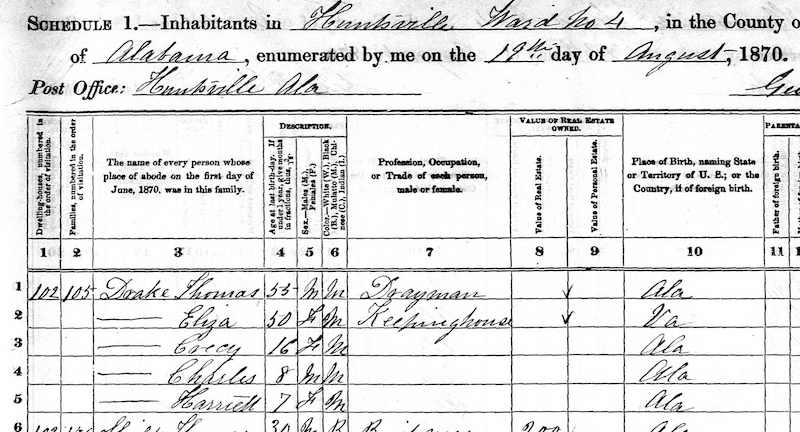 SCHEDULE 1.—Inhabitants in Huntsville Ward No 4, in the County o
of Alabama, enumerated by me on the 19th day of August, 1870.
Post Office: Huntsville Ala
Dwelling-houses, numbered in the order of visitation.
Families, numbered in the order of visitation.
The name of every person whose place of abode on the first day of June, 1870, was in this family.
DESCRIPTION.
Age at last birth-day. If under 1 year, give months in fractions, thus,
Sex.—Males (M.), Females (F.)
Color.—White (W.), Black (B.), Mulatto (M.), Chinese (C.), Indian (I.)
Profession, Occupation, or Trade of each person, male or female.
VALUE OF REAL ESTATE OWNED.
Value of Real Estate.
Value of Personal Estate.
Place of Birth, naming State or Territory of U. S.; or the Country, if of foreign birth.
PARENTA
Father of foreign birth.
1 2 3 4 5 6 7 8 9 10 11
1 102 105 Drake Thomas 55 M M Drayman Ala
2 — Eliza 50 F M Keepinghouse Va
3 — Crecy 16 F M Ala
4 — Charles 8 M M Ala
5 — Harriett 7 F M Ala
6 30 M B 200 Ala